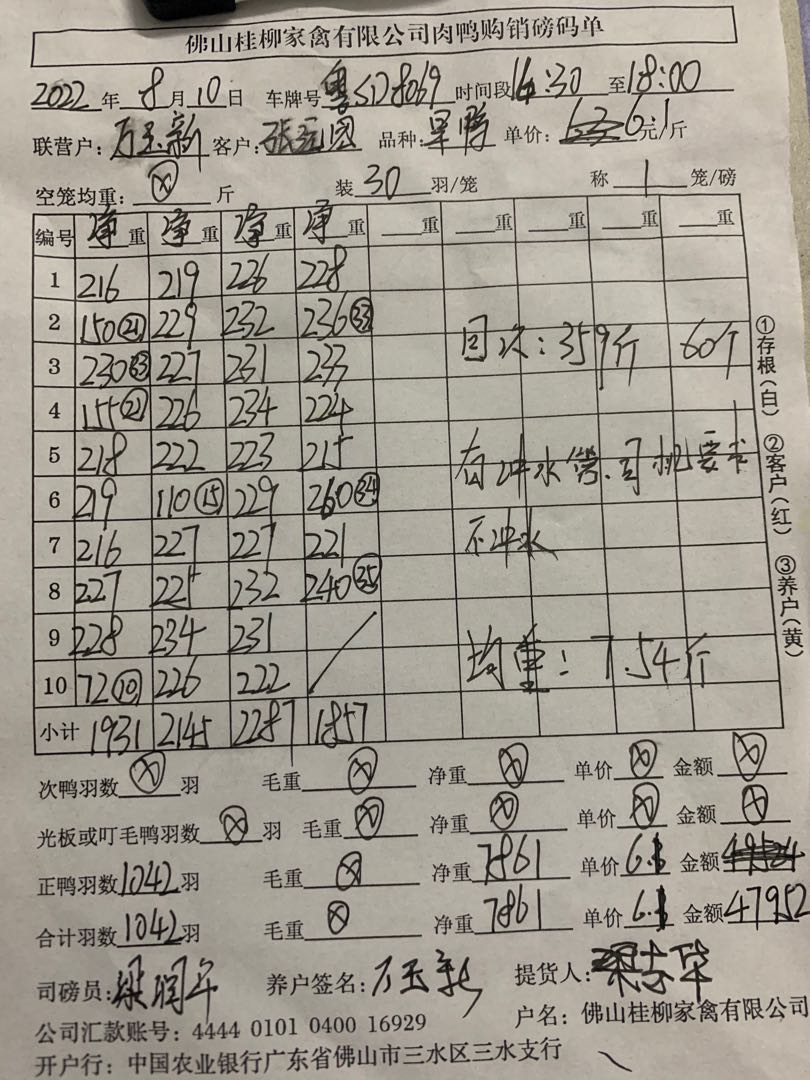 佛山桂柳家禽有限公司肉鸭购销磅码单
2022年8月10日 车牌号 粤SD8069 时间段 14:30 至 18:00
联营户: 万玉新 客户: 品种: 单价: 6.1元/斤
空笼均重: ⓧ 斤 装 30 羽/笼 称 1 笼/磅
编号 净重 净重 净重 净重 重 重 重 重 重
1 216 219 226 228
2 150㉑ 229 232 236㉝
3 230㉝ 227 231 233
回次: 359斤 60个
4 155㉑ 226 234 224
5 218 222 223 215
有冲水管.司机要求
6 219 110⑮ 229 260㉞
7 216 227 227 221
不冲水
8 227 225 232 240㉟
9 228 234 231
均重: 7.54斤
10 72⑩ 226 222
小计 1931 2145 2287 1857
①存根(白) ②客户(红) ③养户(黄)
次鸭羽数 ⓧ 羽 毛重 ⓧ 净重 ⓧ 单价 ⓧ 金额 ⓧ
光板或叮毛鸭羽数 ⓧ 羽 毛重 ⓧ 净重 ⓧ 单价 ⓧ 金额 ⓧ
正鸭羽数 1042 羽 毛重 ⓧ 净重 7861 单价 6.1 金额
合计羽数 1042 羽 毛重 ⓧ 净重 7861 单价 6.1 金额 47952
司磅员: 梁润年 养户签名: 万玉新 提货人: 梁志华
公司汇款账号: 4444 0101 0400 16929 户名: 佛山桂柳家禽有限公司
开户行: 中国农业银行广东省佛山市三水区三水支行